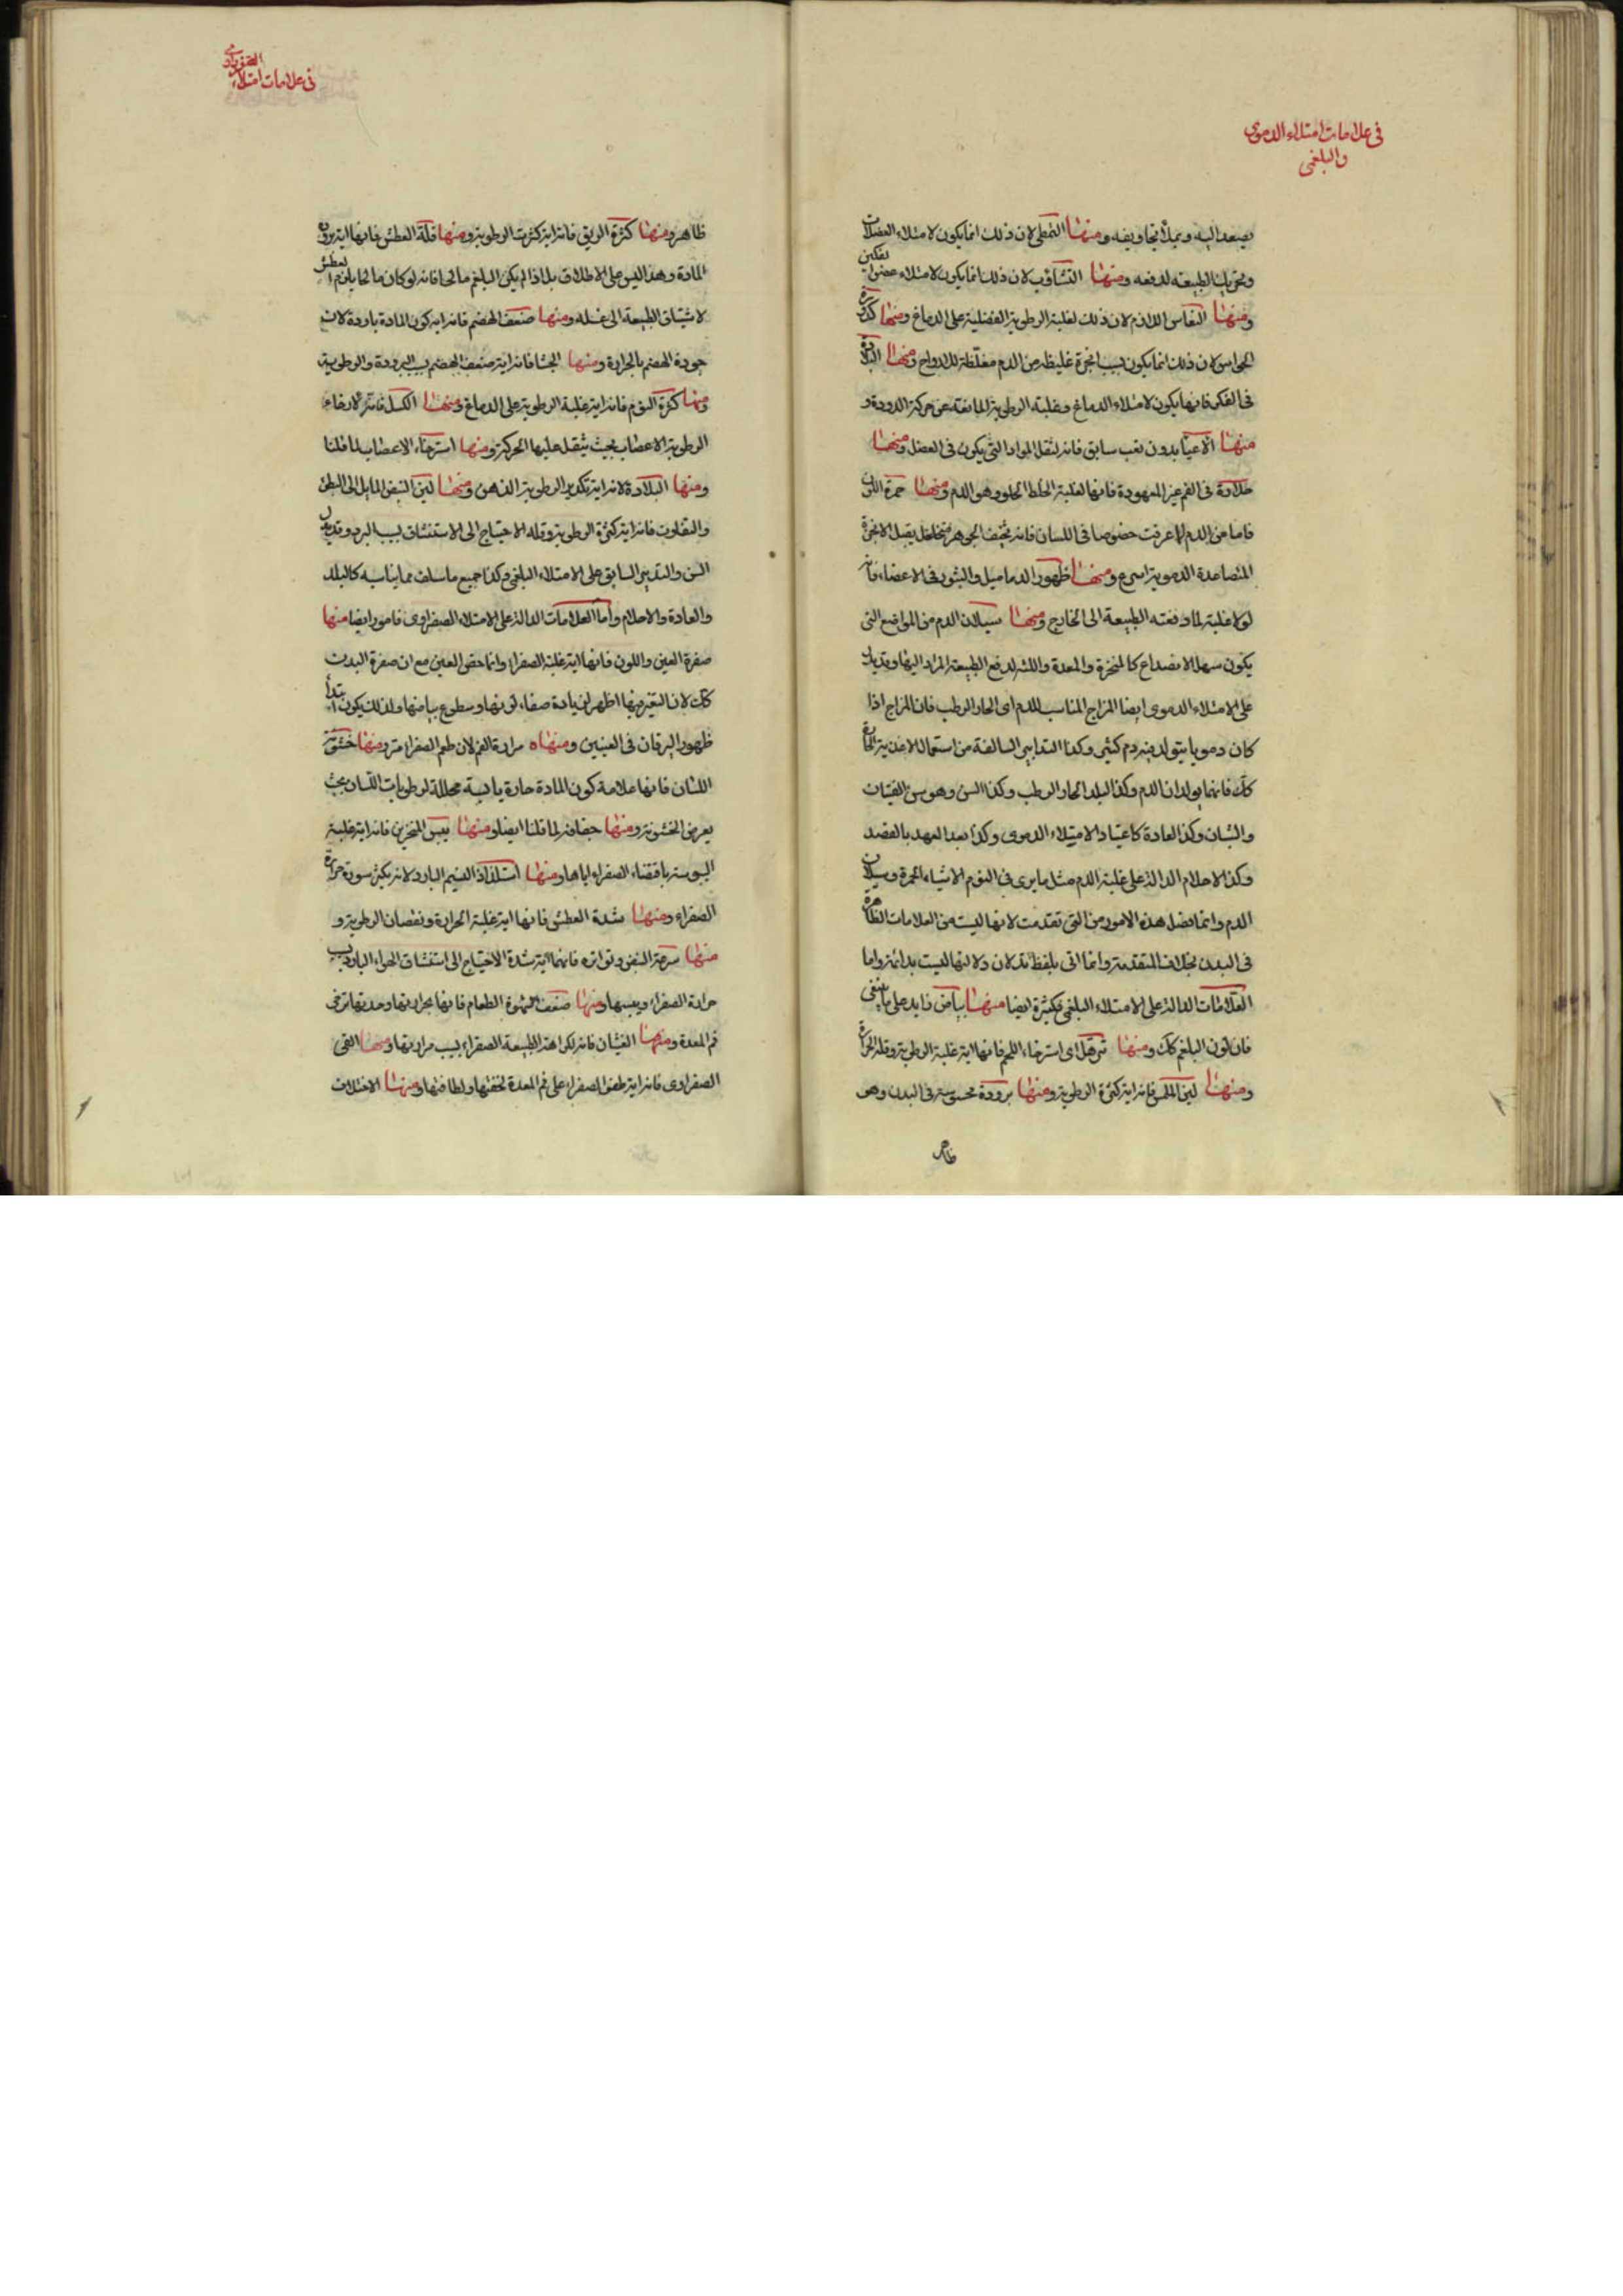 في علامات امتلاء الدموي
والبلغمي
يصعد اليه ويملأ تجاويفه ومنها التمطي لان ذلك انما يكون لامتلاء العضلات
وتحريك الطبيعة لدفعه ومنها التثاؤب لان ذلك انما يكون لامتلاء عضلات الفكين
ومنها النعاس اللازم لان ذلك لغلبة الرطوبة الفضلية على الدماغ ومنها كدورة
الحواس لان ذلك انما يكون بسبب ابخرة غليظة من الدم مغلظة للارواح ومنها البلادة
في الفكر فانها يكون لامتلاء الدماغ وغلبة الرطوبة المانعة عن حركة الدودة و
منها الاعيا بدون تعب سابق فانه لثقل المواد التي يكون في العضل ومنها
حلاوة في الفم غير المعهودة فانها لغلبة الخلط الحلو وهو الدم ومنها حمرة اللون
فاما من الدم لما عرفت خصوصا في اللسان فانه سخيف الجوهر متخلخل يصل الابخرة
المتصاعدة الدموية اسرع ومنها ظهور الدماميل والبثور في الاعضاء فانه
لولا غلبته لما دفعته الطبيعة الى الخارج ومنها سيلان الدم من المواضع التي
يكون سهل الانصداع كالمنخرة والمعدة واللثه لدفع الطبيعة المراد اليها وقد يدل
على الامتلاء الدموي ايضا المزاج المناسب للدم اى الحار الرطب فان المزاج اذا
كان دمويا يتولد فيه دم كثير وكذا التدابير السالفة من استعمال الاغذية الحارة
كك فانهما يولدان الدم وكذا البلد الحار الرطب وكذا السن وهو سن الفتيان
والشبان وكذا العادة كاعتياد الامتلاء الدموي وكذا بعد العهد بالفصد
وكذا الاحلام الدالة على غلبة الدم مثل ما يرى في النوم الاشياء الحمرة وسيلان
الدم وانما فصل هذه الامور من التي تقدمت لانها ليست من العلامات الظاهرة
في البدن بخلاف المتقدمة وانما اتى بلفظ قد لان دلالتها ليست بدائمة واما
العلامات الدالة على الامتلاء البلغمي فكثيرة ايضا منها بياض زايد على ما ينبغي
فان لون البلغم كك ومنها ترهل اى استرخاء اللحم فانها اية غلبة الرطوبة وقلة الحرارة
ومنها لين الملمس فانه اية كثرة الرطوبة ومنها برودة محسوسة في البدن وهو
ظاهر
في علامات امتلاء
الصفراوي
ظاهر ومنها كثرة الريق فانه اية كثرت الرطوبة ومنها قلة العطش فانها اية برودة
المادة وهذا ليس على الاطلاق بل اذا لم يكن البلغم مالحا فانه لو كان مالحا يلزم العطش
لاشتياق الطبيعة الى غسله ومنها ضعف الهضم فانه اية كون المادة باردة لان
جودة الهضم بالحرارة ومنها الجشا فانه اية ضعف الهضم بسبب البرودة والرطوبة
ومنها كثرة النوم فانه اية غلبة الرطوبة على الدماغ ومنها الكسل فانه لارخاء
الرطوبة الاعصاب بحيث يثقل عليها الحركة ومنها استرخاء الاعصاب لما قلنا
ومنها البلادة لانه اية تكدير الرطوبة الذهن ومنها لين النبض المايل الى البطئ
والتفاوت فانه اية كثرة الرطوبة وقلة الاحتياج الى الاستنشاق بسبب البرد وقد يدل
السن والتدبير السابق على الامتلاء البلغمي وكذا جميع ما سلف مما يناسبه كالبلد
والعادة والاحلام واما العلامات الدالة على الامتلاء الصفراوي فامور ايضا منها
صفرة العين واللون فانها اية غلبة الصفراء وانما خص العين مع ان صفرة البدن
كك لان التغير فيها اظهر لزيادة صفاء لونها وسطوع بياضها ولذلك يكون ابتدأ
ظهور اليرقان في العينين ومنها مرارة الفم لان طعم الصفراء مر ومنها خشونة
اللسان فانها علامة كون المادة حارة يابسة محللة لرطوبات اللسان بحيث
يعرض الخشونة ومنها جفافه لما قلنا ايضا ومنها يبس المنخرين فانه اية غلبة
اليبوسة باقتضاء الصفراء اياها ومنها استلذاذ النسيم البارد لانه يكسر سورة حرارة
الصفراء ومنها شدة العطش فانها اية غلبة الحرارة ونقصان الرطوبة و
منها سرعة النبض وتواتره فانهما اية شدة الاحتياج الى استنشاق الهواء البارد بسبب
حرارة الصفراء ويبسها ومنها ضعف شهوة الطعام فانها بحرارتها وحدتها ترخى
فم المعدة ومنها الغثيان فانه لكراهة الطبيعة الصفراء بسبب مرارتها ومنها القى
الصفراوى فانه اية طفو الصفراء على فم المعدة لخفتها ولطافتها ومنها الاختلاف